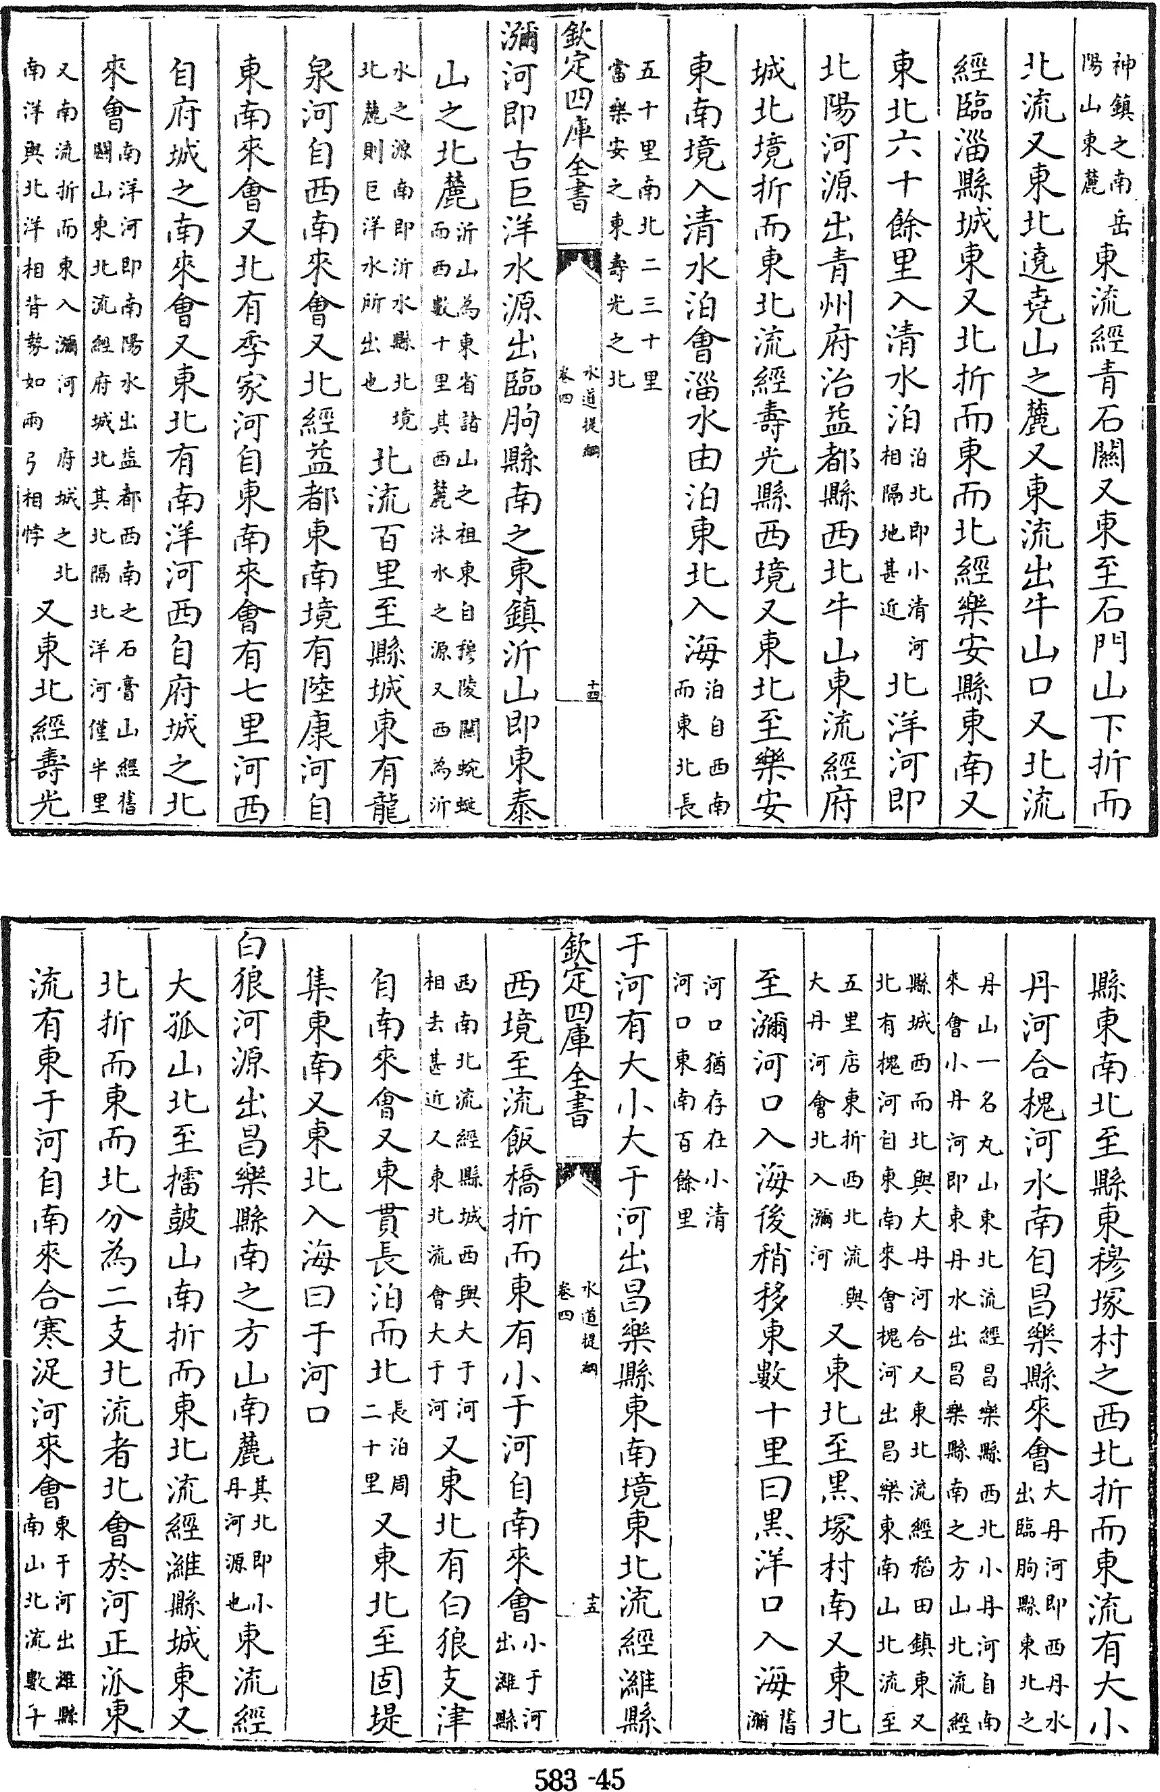 神鎮之南岳
陽山東麓
東流經青石關又東至石門山下折而
北流又東北遶堯山之麓又東流出牛山口又北流
經臨淄縣城東又北折而東而北經樂安縣東南又
東北六十餘里入清水泊
泊北即小清河
相隔地甚近
北洋河即
北陽河源出青州府治益都縣西北牛山東流經府
城北境折而東北流經壽光縣西境又東北至樂安
東南境入清水泊會淄水由泊東北入海
泊自西南
而東北長
五十里南北二三十里
當樂安之東壽光之北
欽定四庫全書
水道提綱
卷四
十四
瀰河即古巨洋水源出臨朐縣南之東鎮沂山即東泰
山之北麓
沂山為東省諸山之祖東自穆陵關蜿蜒
而西數十里其西麓沭水之源又西為沂
水之源南即沂水縣北境
北麓則巨洋水所出也
北流百里至縣城東有龍
泉河自西南來會又北經益都東南境有陸康河自
東南來會又北有季家河自東南來會有七里河西
自府城之南來會又東北有南洋河西自府城之北
來會
南洋河即南陽水出益都西南之石膏山經舊
關山東北流經府城北其北隔北洋河僅半里
又南流折而東入瀰河府城之北
南洋與北洋相背勢如兩弓相悖
又東北經壽光
縣東南北至縣東穆塚村之西北折而東流有大小
丹河合槐河水南自昌樂縣來會
大丹河即西丹水
出臨朐縣東北之
丹山一名丸山東北流經昌樂縣西北小丹河自南
來會小丹河即東丹水出昌樂縣南之方山北流經
縣城西而北與大丹河合又東北流經稻田鎮東又
北有槐河自東南來會槐河出昌樂東南山北流至
五里店東折西北流與
大丹河會北入瀰河
又東北至黑塚村南又東北
至瀰河口入海後稍移東數十里曰黑洋口入海
舊
瀰
河口猶存在小清
河口東南百餘里
于河有大小大于河出昌樂縣東南境東北流經濰縣
欽定四庫全書
水道提綱
卷四
十五
西境至流飯橋折而東有小于河自南來會
小于河
出濰縣
西南北流經縣城西與大于河
相去甚近又東北流會大于河
又東北有白狼支津
自南來會又東貫長泊而北
長泊周
二十里
又東北至固堤
集東南又東北入海曰于河口
白狼河源出昌樂縣南之方山南麓
其北即小
丹河源也
東流經
大孤山北至擂鼓山南折而東北流經濰縣城東又
北折而東而北分為二支北流者北會於河正派東
流有東于河自南來合寒浞河來會
東于河出濰縣
南山北流數十
583-45